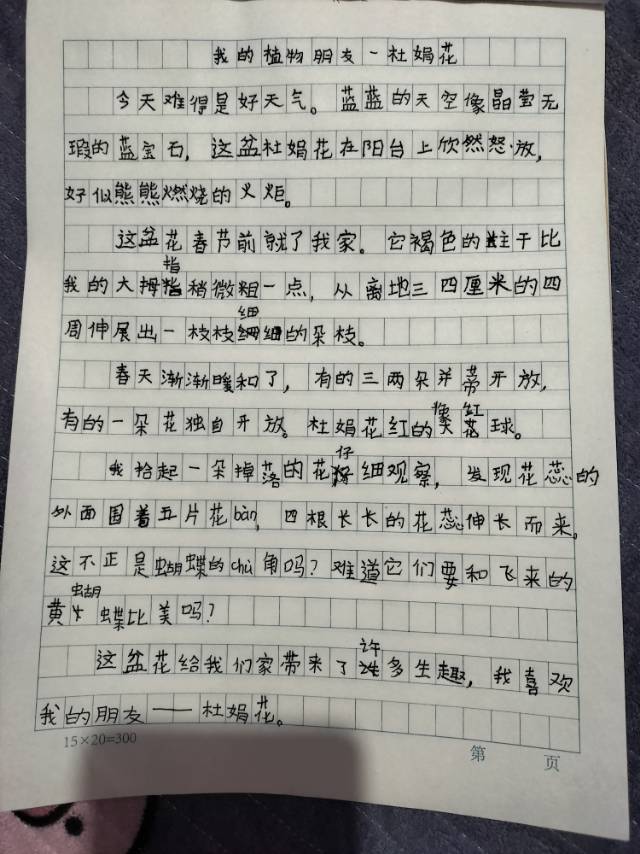 我的植物朋友-杜娟花
今天难得是好天气。蓝蓝的天空像晶莹无
瑕的蓝宝石,这盆杜娟花在阳台上欣然怒放,
好似熊熊燃烧的火炬。
这盆花春节前就了我家。它褐色的柱干比
我的大拇指稍微粗一点,从离地三四厘米的四
周伸展出一枝枝细细的朵枝。
春天渐渐暖和了,有的三两朵并蒂开放,
有的一朵花独自开放。杜娟花红的像红花球。
我拾起一朵掉落的花仔细观察,发现花蕊的
外面围着五片花bàn,四根长长的花蕊伸长而来。
这不正是蝴蝶的chù角吗?难道它们要和飞来的
黄蝴蝶比美吗?
这盆花给我们家带来了许多生趣,我喜欢
我的朋友——杜娟花。
15×20=300
第 页